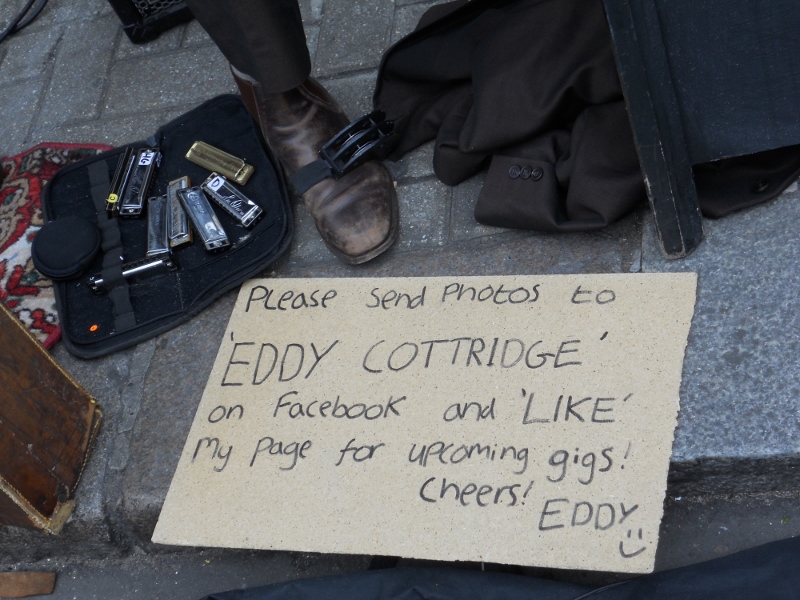 Please send Photos to
'EDDY COTTRIDGE'
on Facebook and 'LIKE'
My page for upcoming gigs!
Cheers!
EDDY
D